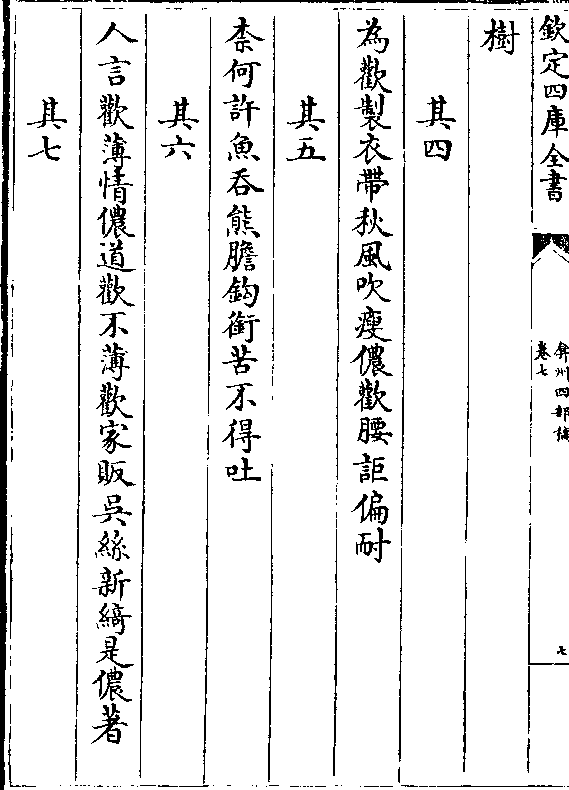 欽定四庫全書
弇州四部稿
卷七
七
樹
其四
為歡製衣帶秋風吹瘦儂歡腰詎偏耐
其五
柰何許魚吞熊膽鈎銜苦不得吐
其六
人言歡薄情儂道歡不薄歡家販吳絲新縞是儂著
其七